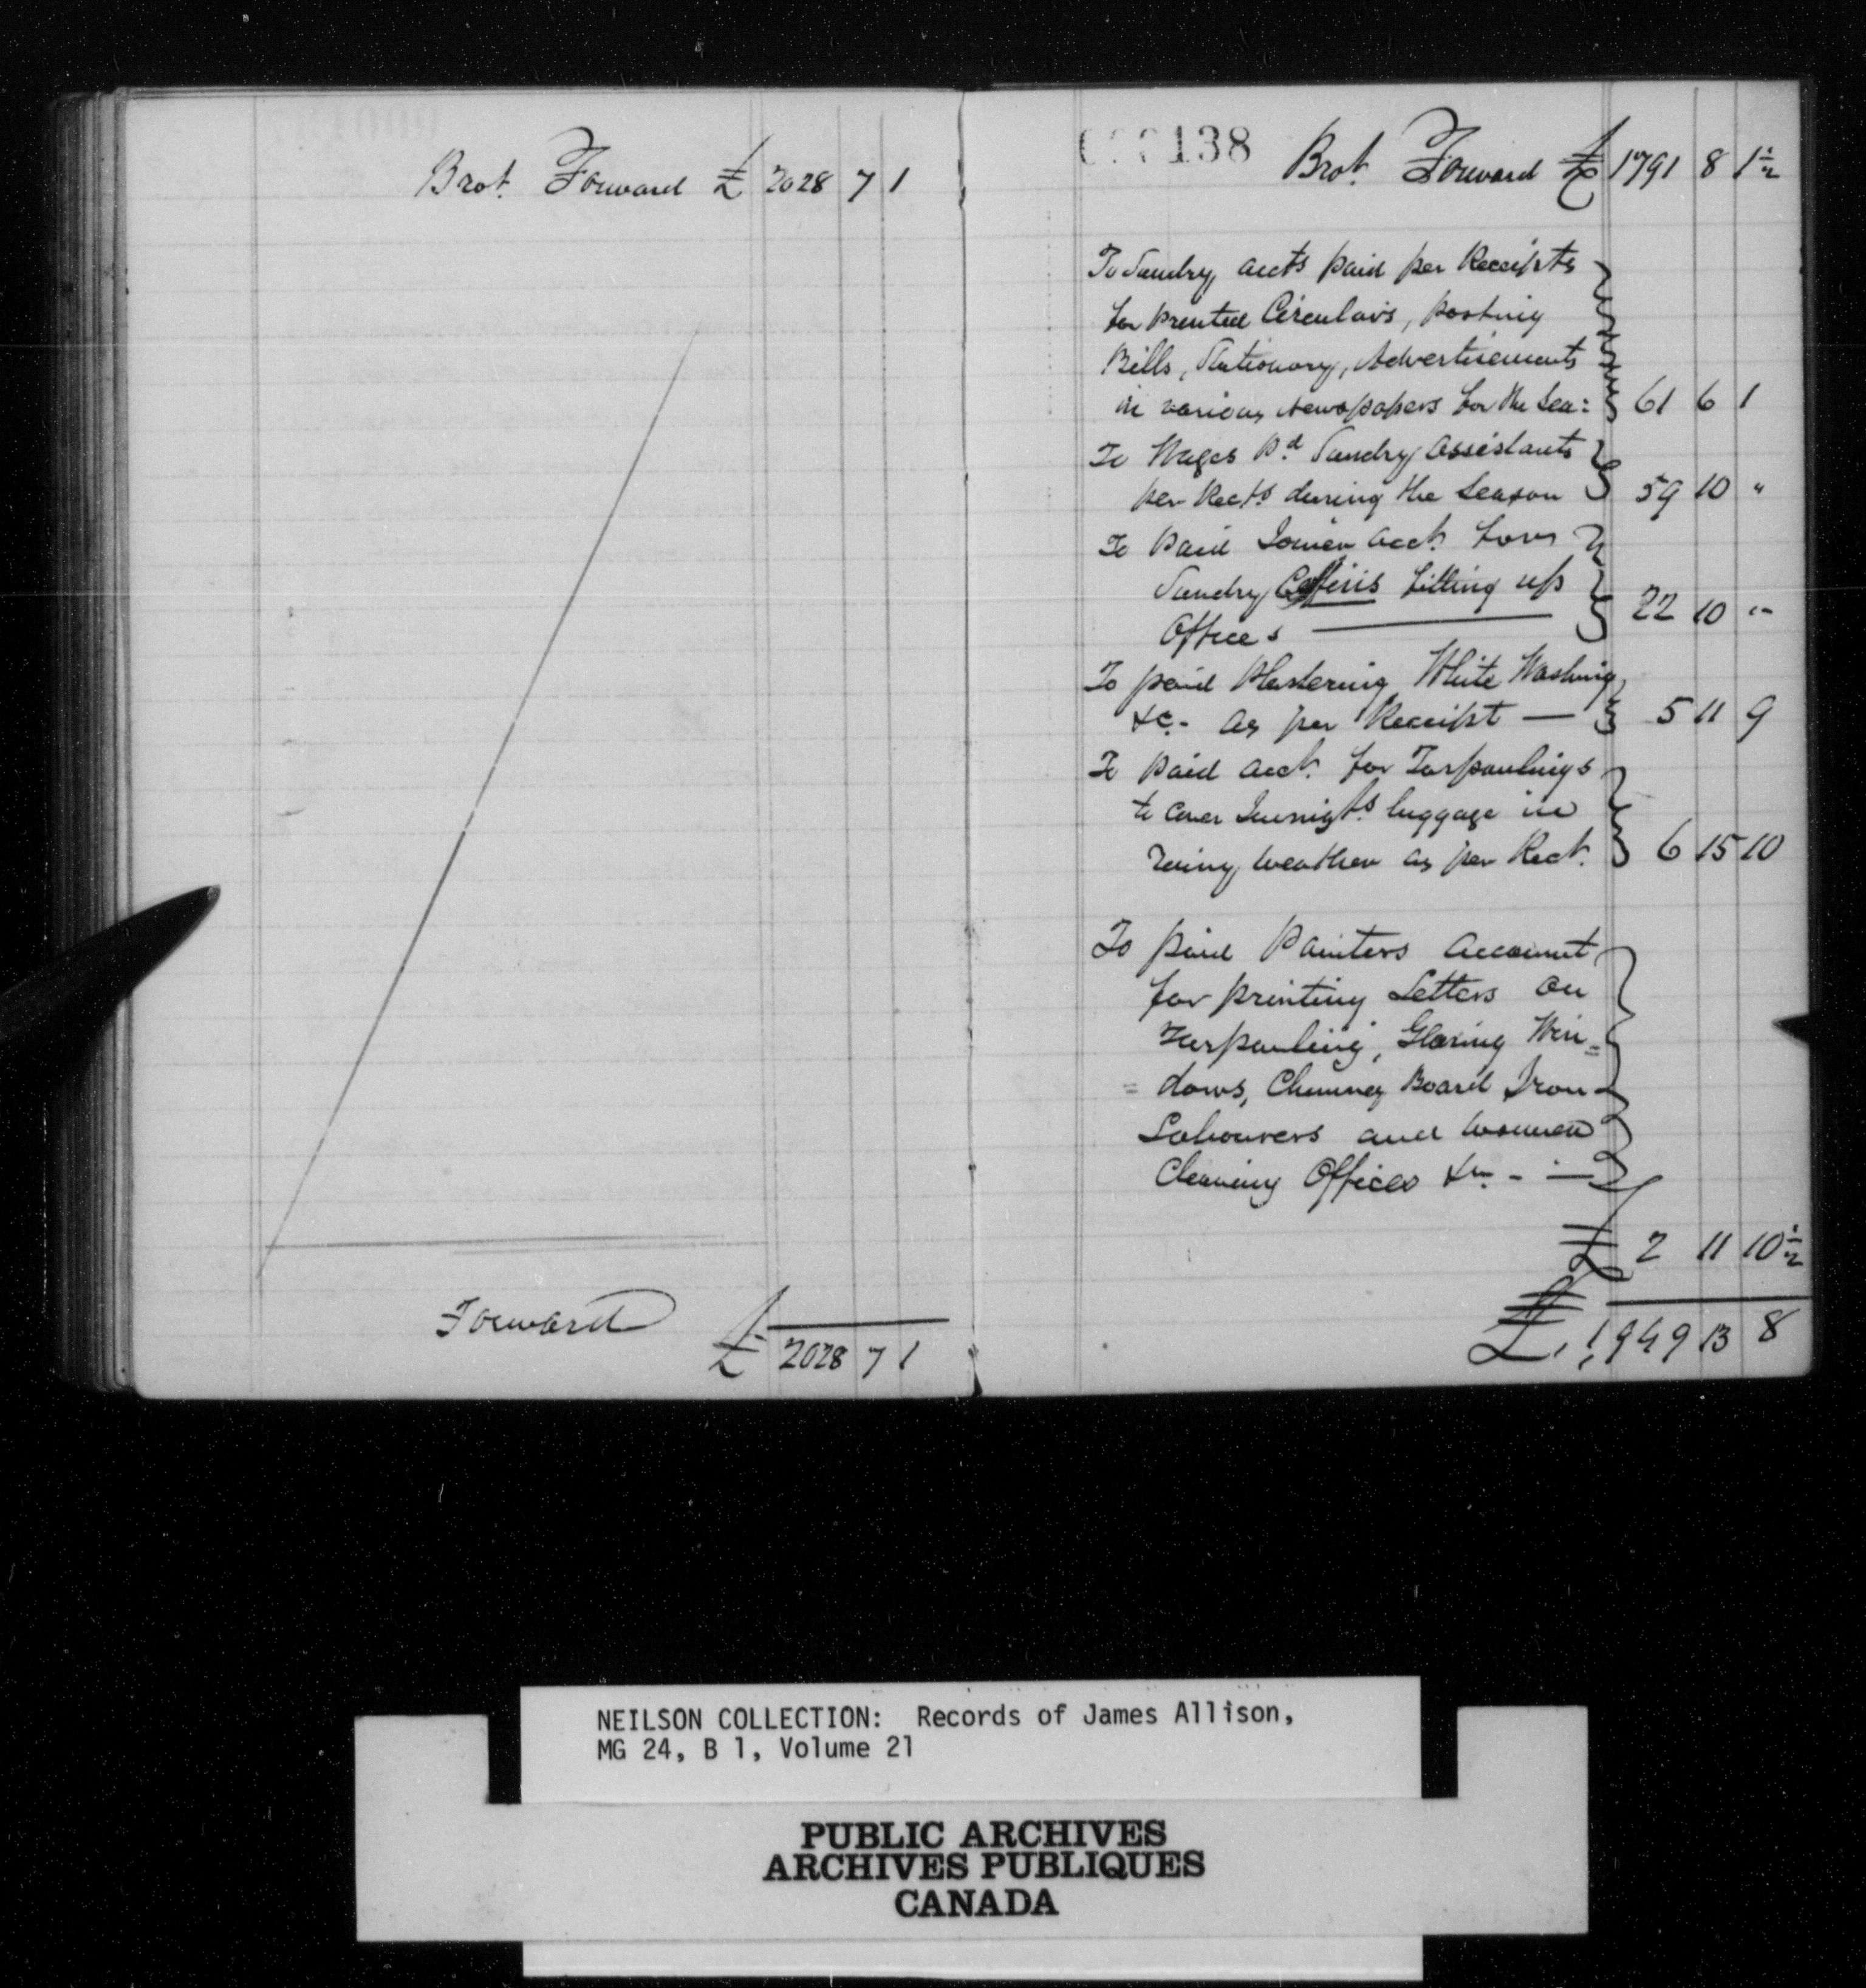 Brot. Forward £ 2028 7 1
Forward £ 2028 7 1
138 Brot. Forward £ 1791 8 1½
To Sundry accts paid per Receipts
for printed Circulars, posting
Bills, Stationary, Advertisements
in various Newspapers for the Sea= 61 6 1
To Wages Pd Sundry assistants
per Rects during the Season 59 10 "
To Paid Joiner acct. for
Sundry Coffins fitting up
Offices 22 10 "
To paid Plastering White Washing
&c. as per Receipt — 5 11 9
To Paid acct. for Tarpaulings
to cover Immigts luggage in
rainy weather as per Rect. 6 15 10
To paid Painters account
for printing Letters on
Tarpauling, Glazing Win=
=dows, Chimney Board Iron
Labourers and women
Cleaning Offices &c. - —
£ 2 11 10½
£ 1,949 13 8
NEILSON COLLECTION: Records of James Allison,
MG 24, B 1, Volume 21
PUBLIC ARCHIVES
ARCHIVES PUBLIQUES
CANADA